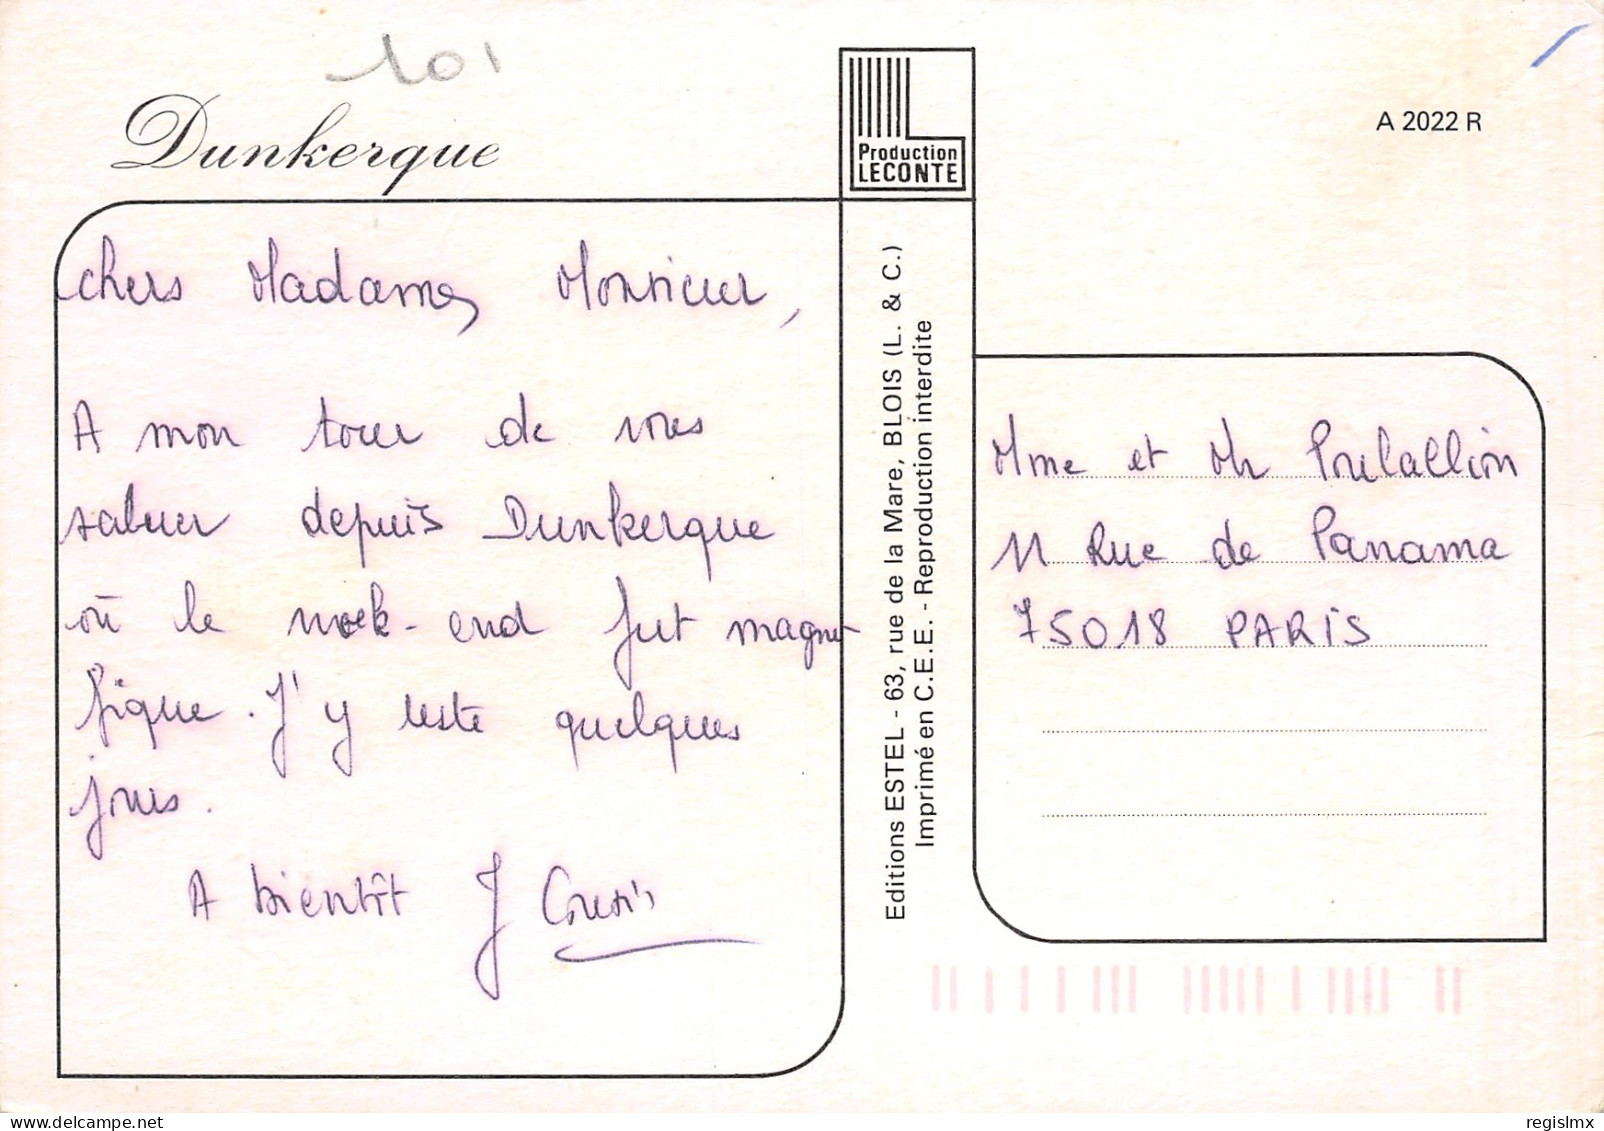 101
Dunkerque
Production
LECONTE
A 2022 R
chers Madame, Monsieur,
A mon tour de vous
saluer depuis Dunkerque
où le week-end fut magni-
fique. J'y reste quelques
jours.
A bientôt J Cousin
Editions ESTEL - 63, rue de la Mare, BLOIS (L. & C.)
Imprimé en C.E.E. - Reproduction interdite
Mme et Mr
11 Rue de Panama
75018 PARIS
regislmx